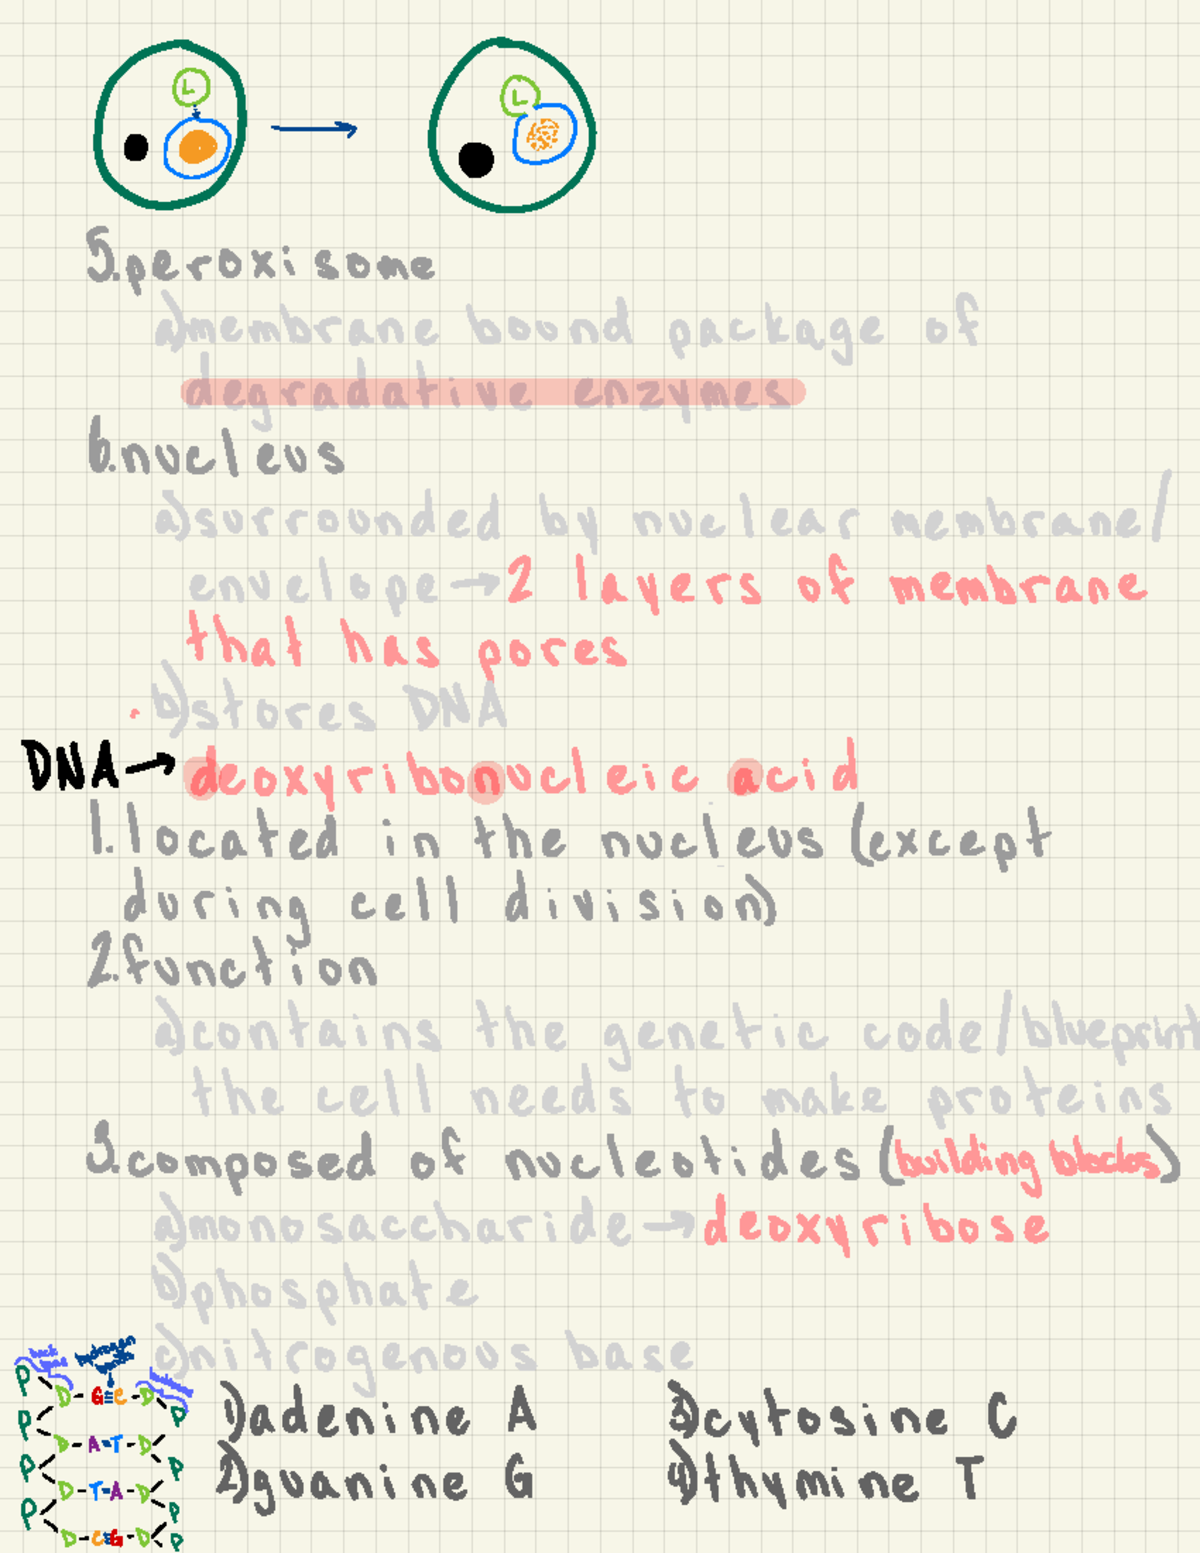 L
L
5.peroxisome
a)membrane bound package of
degradative enzymes
6.nucleus
a)surrounded by nuclear membrane/
envelope→2 layers of membrane
that has pores
b)stores DNA
DNA→deoxyribonucleic acid
1.located in the nucleus (except
during cell division)
2.function
a)contains the genetic code/blueprint
the cell needs to make proteins
3.composed of nucleotides (building blocks)
a)monosaccharide→deoxyribose
b)phosphate
c)nitrogenous base
back bone
hydrogen bonds
backbone
P
D-G≡C-D
P
P
D-A=T-D
P
P
D-T=A-D
P
P
D-C≡G-D
P
1)adenine A 3)cytosine C
2)guanine G 4)thymine T